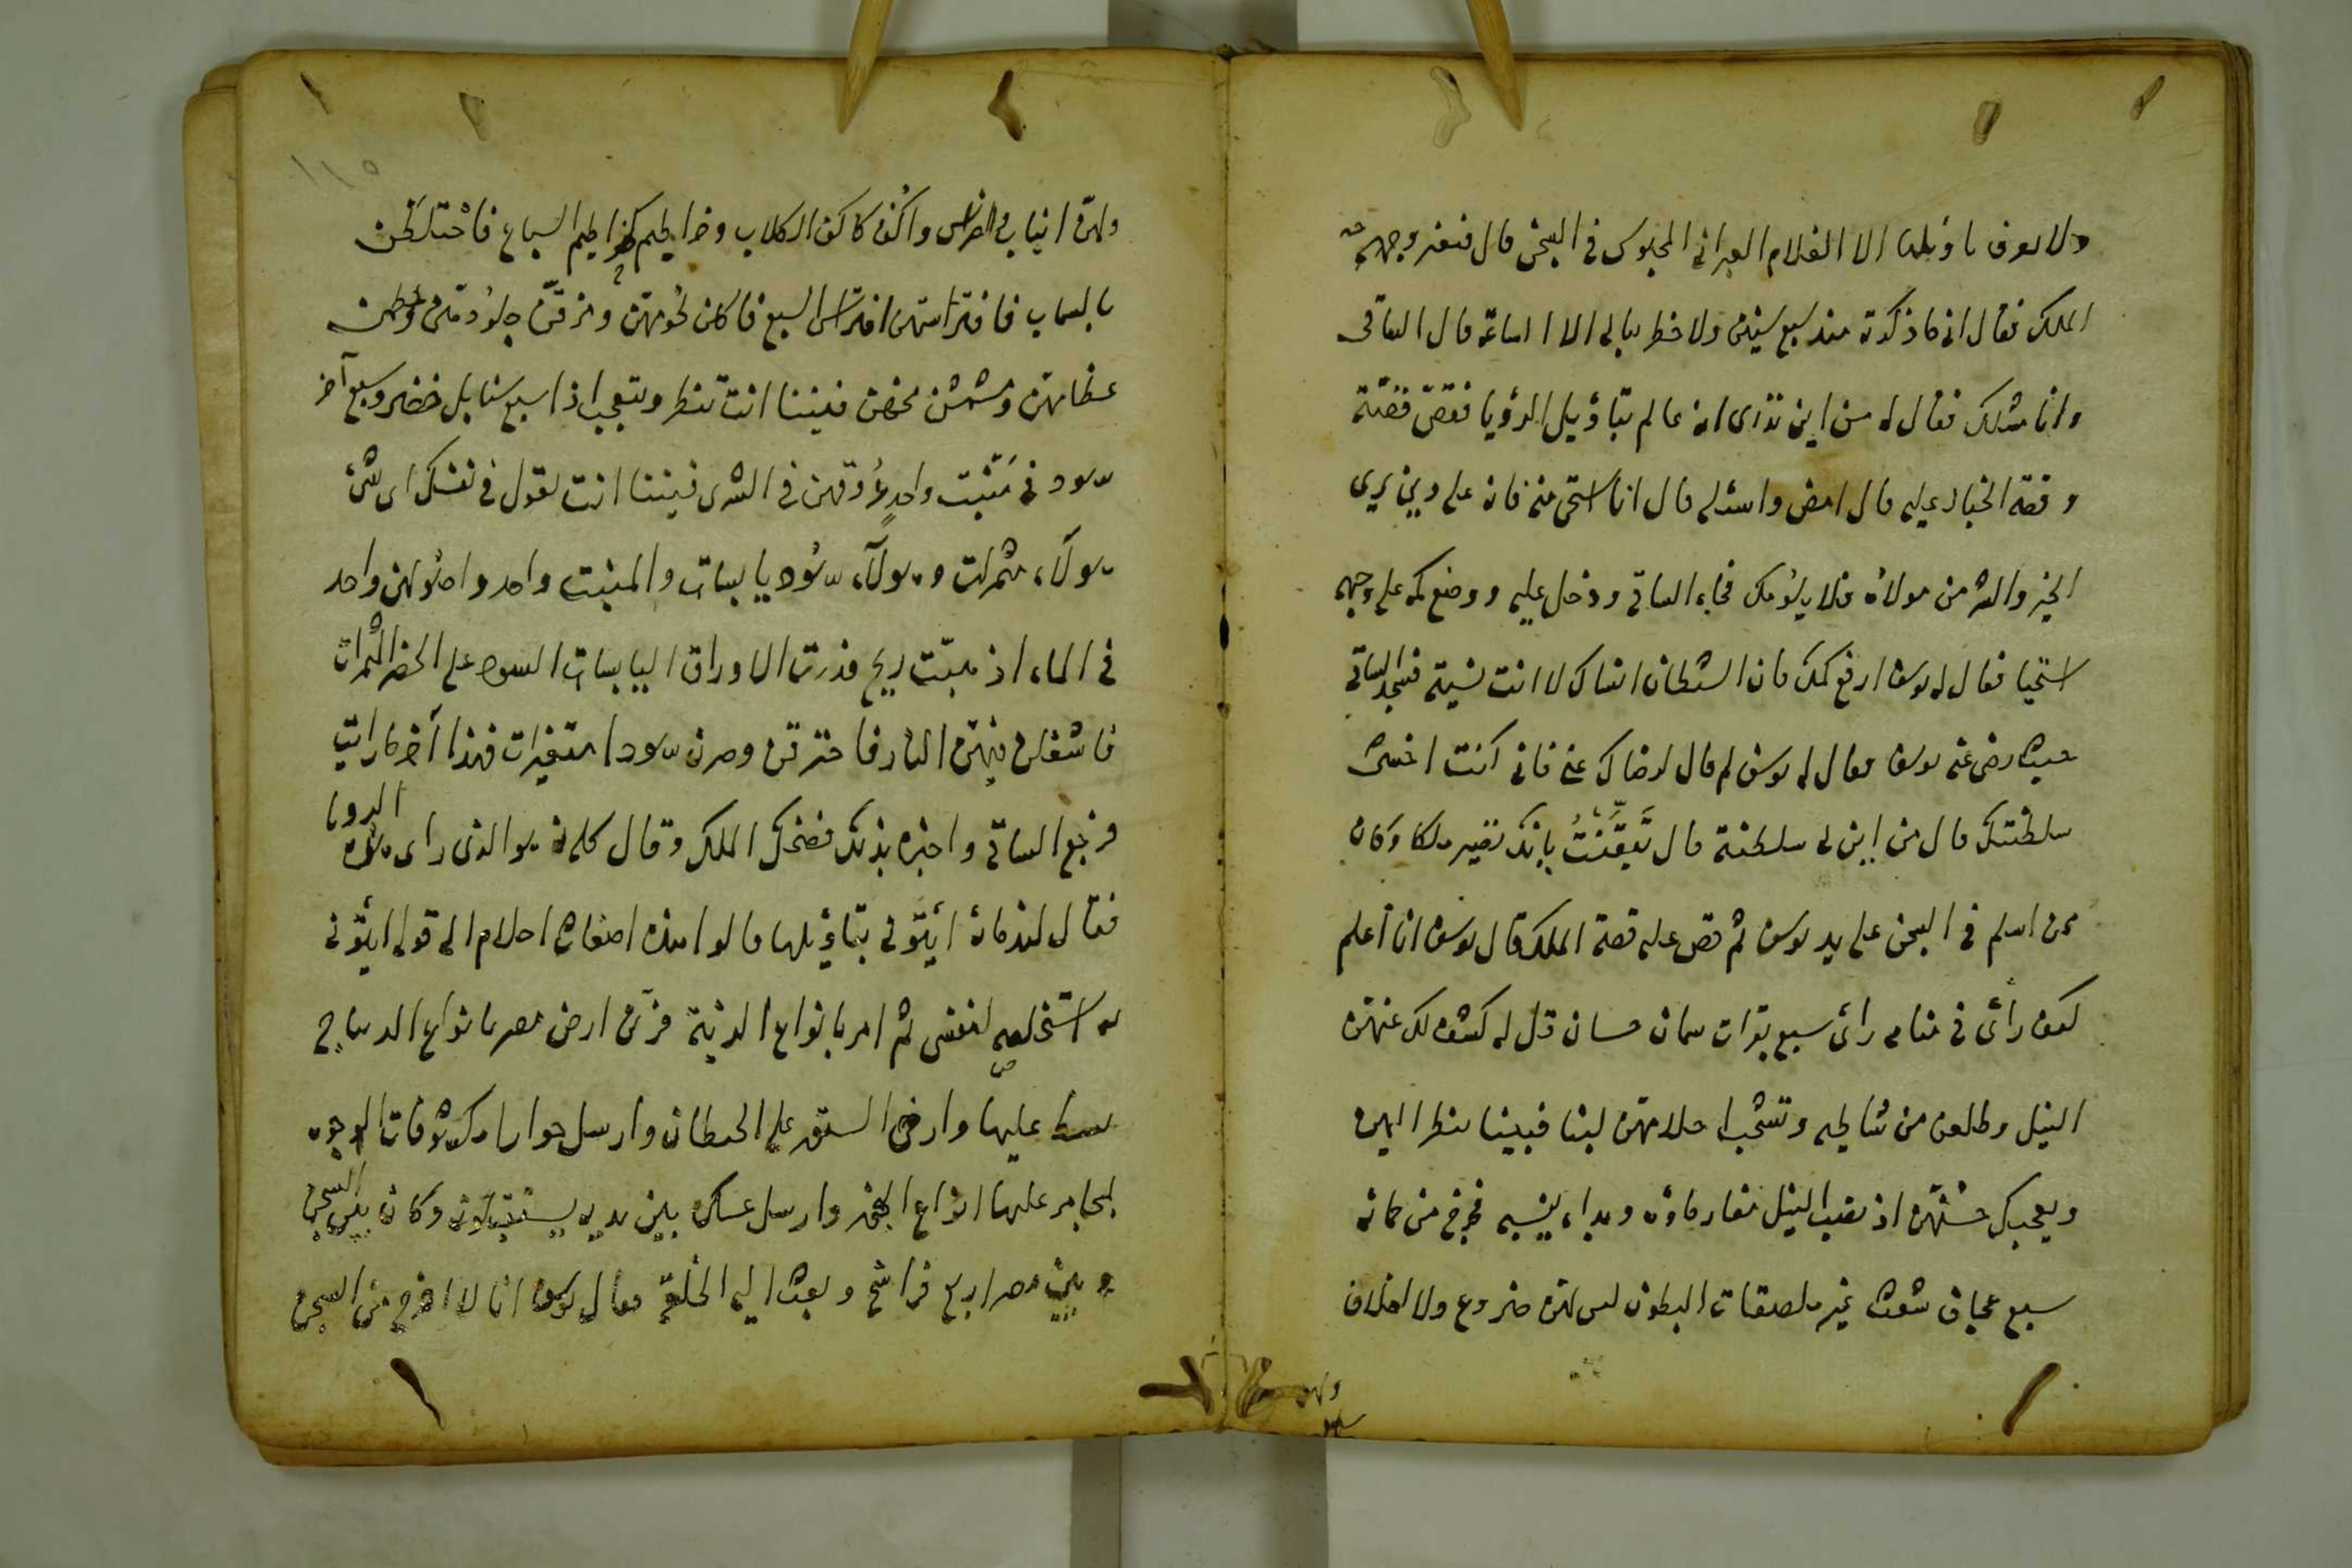 ولا يعرف تاويلها الا الغلام العبراني المحبوس في السجن قال فتغير وجه
الملك فقال اني ما ذكرته منذ سبع سنين ولا خطر ببالي الا الساعة قال الساقي
وانا مثلك فقال له من اين تدرى انه عالم بتاويل الرؤيا فقصّ قصّته
وقصة الخباز عليه قال امض واسئله قال انا استحى منه فانه على دين يرى
الخير والشر من مولاه فلا يلومك فجاء الساقي ودخل عليه ووضع كمه على وجهه
استحيا فقال له يوسف ارفع كمك فان الشيطان انساك لا انت نسيته فسجد الساقي
حيث رضى عنه يوسف فقال له يوسف لم قال لرضاك عني فاني كنت اخشى
سلطنتك قال من اين لي سلطنة قال تَيَقَّنْتُ بانك تصير ملكا وكان
ممن اسلم في السجن على يد يوسف ثم قص عليه قصة الملك قال يوسف انا أعلم
كيف رأى في منامه رأى سبع بقرات سمان حسان قل له كشف لك عنهن
النيل وطلعن من شاطيه وتشخب احلامهن لبنا فبينا تنظر اليهن
ويعجبك حسنهن اذ نضب النيل فغار ماؤه وبدا يبسه فخرج من حمائه
سبع عجاف شعث غبر ملصقات البطون ليس لهن ضروع ولا اخلاف
ولهن
ولهنّ انياب واضراس واكف كاكف الكلاب وخراطيم كخراطيم السباع فاختلطن
بالسمان فافترستهن افتراس السبع فاكلن لحومهن ومزقن جلودهن وحطمن
عظامهن ومشمشن مخهن فبينا انت تنظر وتتعجب اذا سبع سنابل خضر وسبع آخر
سود في مَنْبت واحد عُروقهن في الثرى فبينا انت تقول في نفسك اى شئ
هولآء مثمرات وهولآء سُود يابسات والمنبت واحد واصُولهن واحد
في الماء اذ هبّت ريح فذرت الاوراق اليابسات السود على الخضر المثمرات
فاشعلت فيهن النار فاحترقن وصرن سودا متغيرات فهذا آخر ما رايت
فرجع الساقي واخبره بذلك فضحك الملك وقال كانه هو الذى راى هذه الرويا
فقال لندمائه ايتوني بتاؤيلها قالوا هذه اضغاث احلام الى قوله ايتوني
به استخلصه لنفسي ثم امر بانواع الزينة فزين ارض مصر بانواع الديباج
بسط عليها وارخى الستور على الحيطان وارسل جوارا مكشوفات الوجوه
المجامر عليها انواع البخور وارسل عسكره بين يديه يستقبلونه وكان بين السجن
وبين مصر اربع فراسخ وبعث اليه الخلعة فقال يوسف انا لا اخرج من السجن